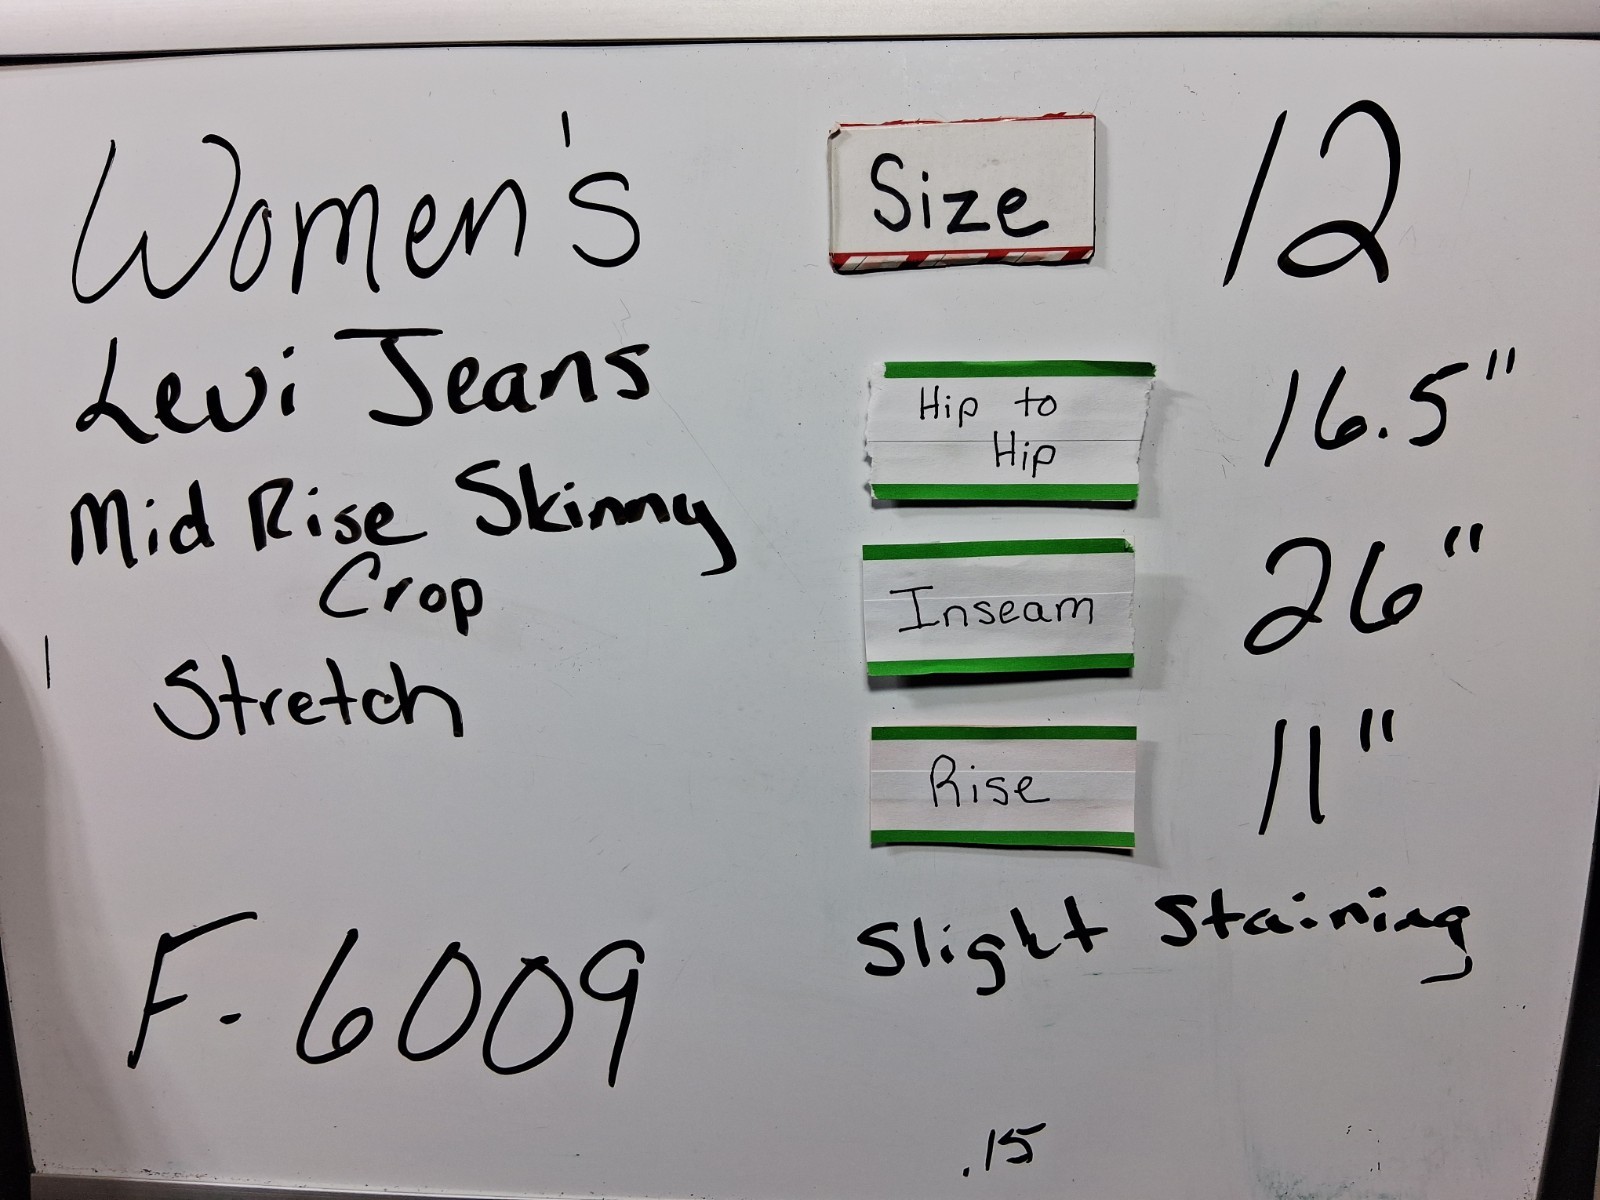 Women's
Levi Jeans
Mid Rise Skinny
Crop
Stretch
F-6009
Size 12
Hip to
Hip 16.5"
Inseam 26"
Rise 11"
Slight Staining
.15